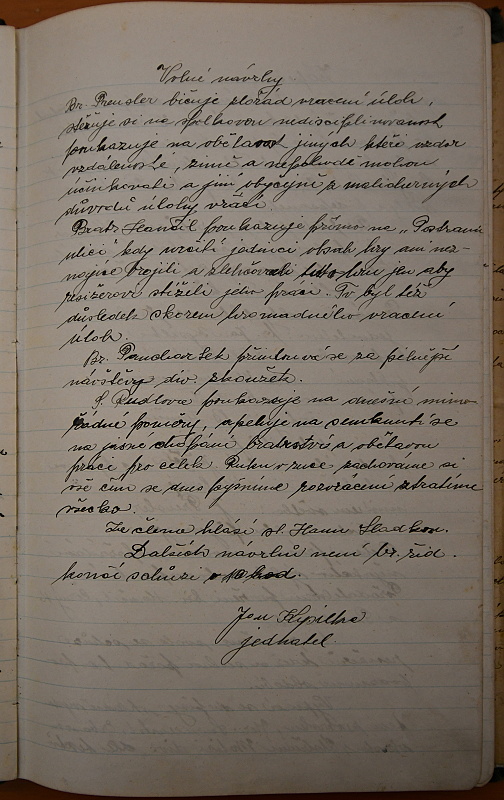 Volné návrhy.
Br. Preusler bičuje zlořád vracení úloh,
stěžuje si na spolkovou nedisciplinovanost
poukazuje na obětavost jiných kteří vzdor
vzdálenosti, zimě a nepohodě mohou
účinkovati a jiní obyčejně z malicherných
důvodů úlohy vrací.
Bratr Hančil poukazuje přímo na „Postranní
ulici" kdy určití jedinci obsah hry ani nez-
najíce brojili a zlehčovali tuto hru jen aby
režiserovi stížili jeho práci. To byl též
důsledek skorem hromadného vracení
úloh.
Br. Puchar̃tek přimlouvá se za pilnější
návštěvy div. zkoušek.
S. Rudlová poukazuje na dnešní mimo
řádné poměry, apeluje na semknutí se
na jasné chápání bratrství a obětavou
práci pro celek. Ruku v ruce zachováme si
vše čím se dnes pyšníme rozvrácení ztratíme
všecko.
Za člena hlásí sl. Hanu Sladkou.
Dalších návrhů není br. řid.
končí schůzi v hod.
Jan
jednatel.